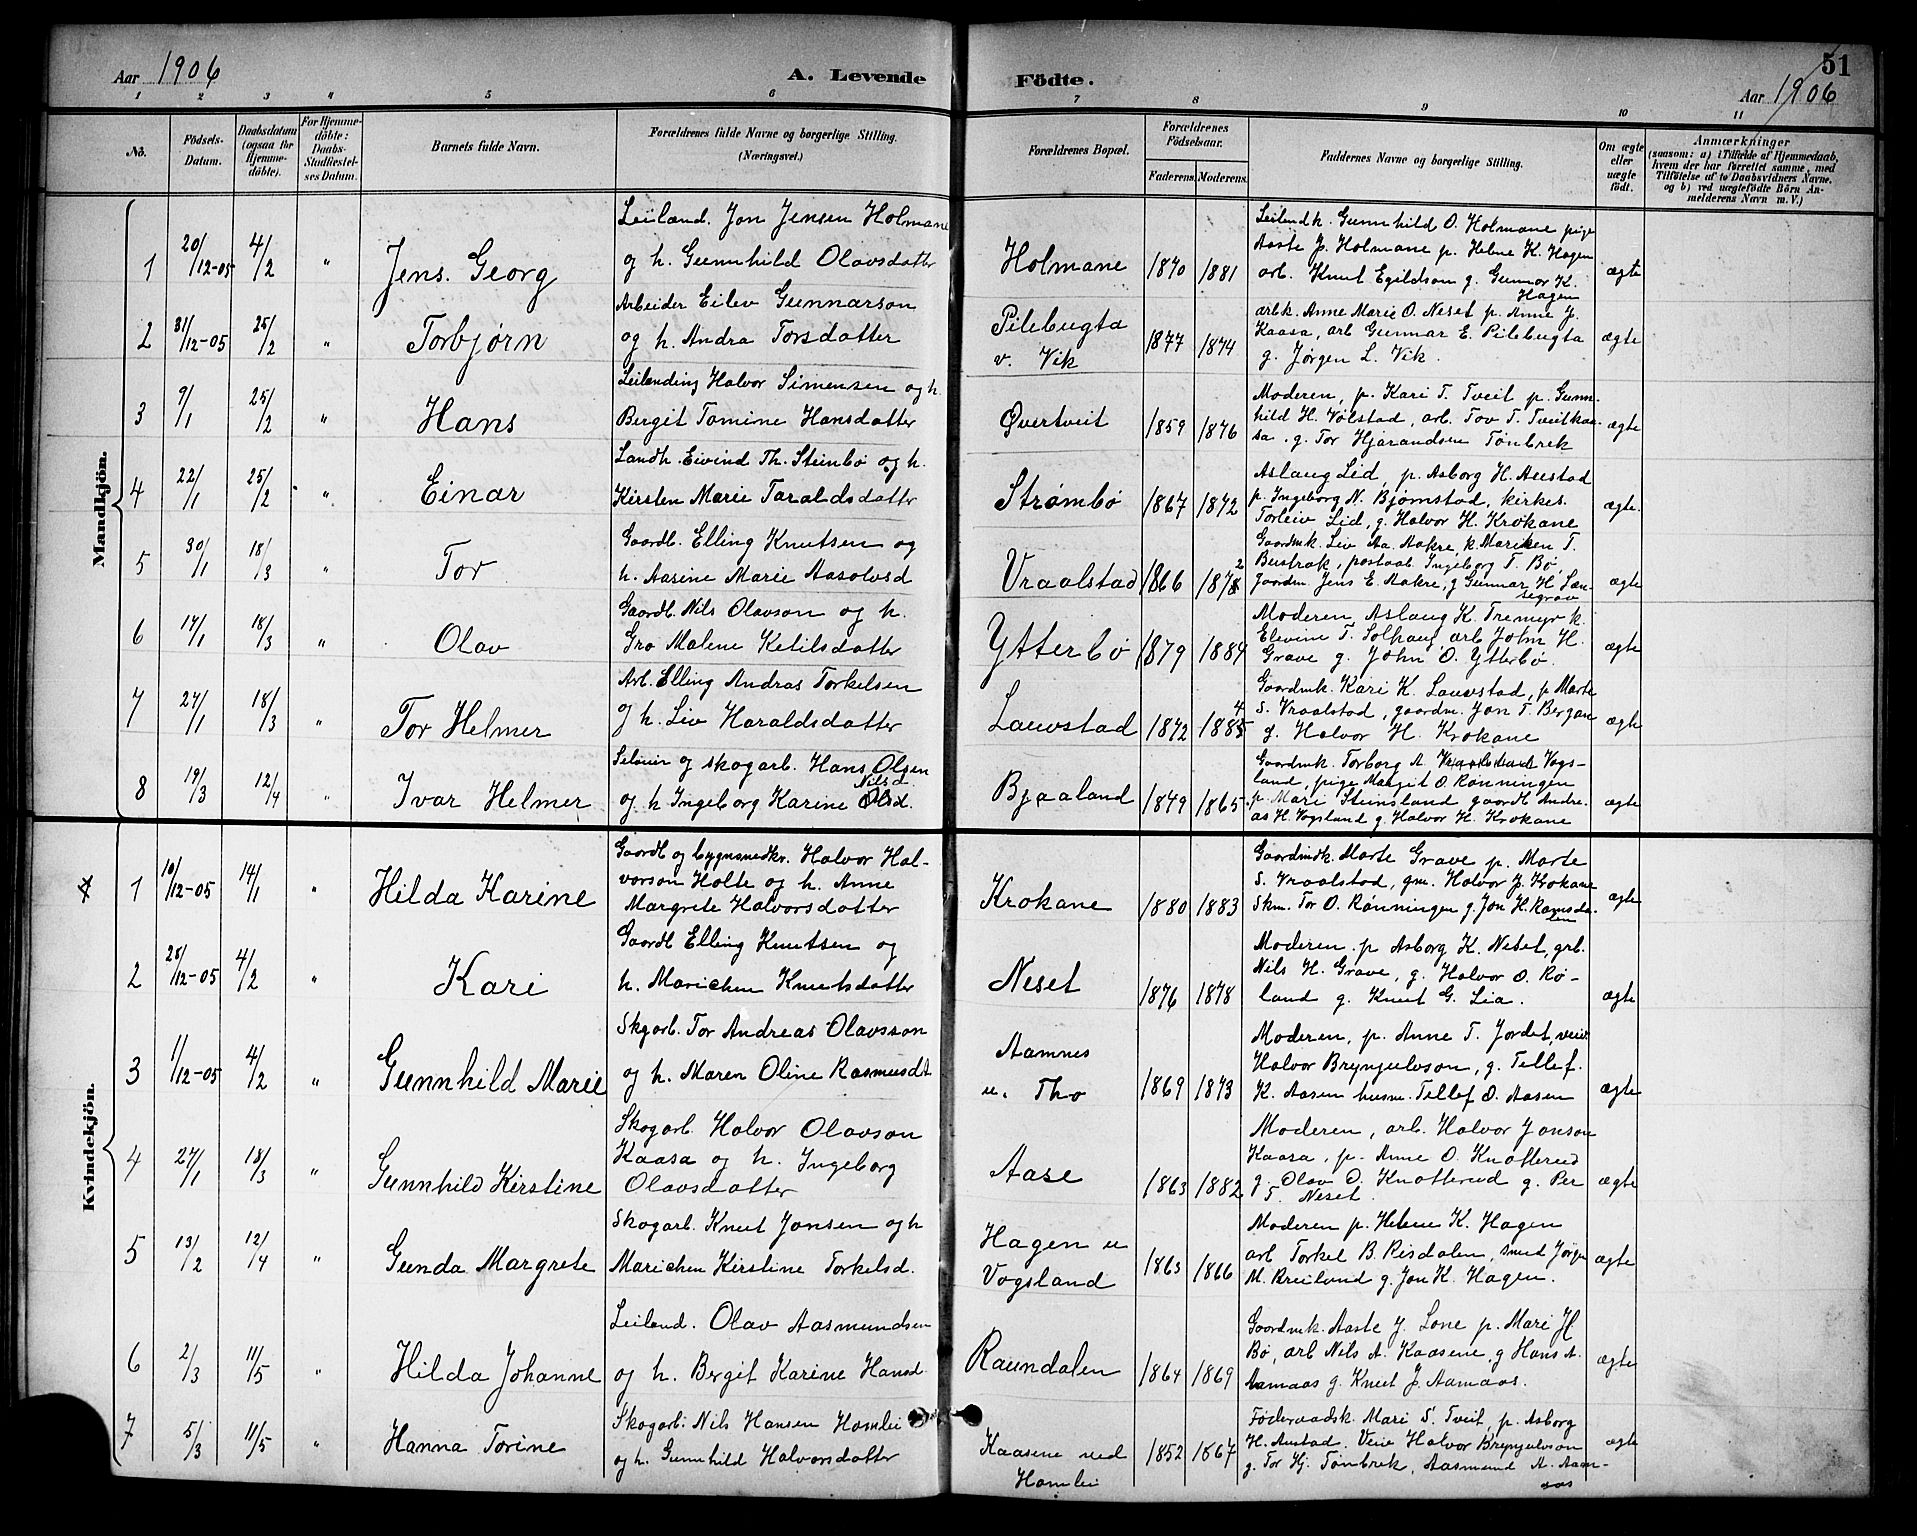 Aar 1906
A. Levende Födte.
51
Aar 1906
1 2 3 4 5 6 7 8 9 10 11
No.
Födsels-
Datum.
Daabsdatum
(ogsaa for
Hjemme-
döbte).
For Hjemme-
döbte:
Daabs-
Stadfæstel-
ses Datum.
Barnets fulde Navn.
Forældrenes fulde Navne og borgerlige Stilling.
(Næringsvei.)
Forældrenes Bopæl.
Forældrenes
Födselsaar.
Faderens. Moderens.
Faddernes Navne og borgerlige Stilling.
Om ægte
eller
uægte
födt.
Anmærkninger
(saasom: a) i Tilfælde af Hjemmedaab,
hvem der har forrettet samme, med
Tilföielse af to Daabsvidners Navne,
og b) ved uægtefödte Börn An-
melderens Navn m. V.)
Mandkjön.
1 20/12-05 4/2 " Jens. Georg
Leilænd. Jon Jensen Holmane
og h. Gunnhild Olavsdatter
Holmane 1870 1881
Leilendk. Gunnhild O. Holmane pige
Aaste J. Holmane p. Helene K. Hagen
arb. Knut Egildson g. Gunnor K.
Hagen
ægte
2 31/12-05 25/2 " Torbjørn
Arbeider Eilev Gunnarson
og h. Andra Torsdatter
Pilebugta
v. Vik 1877 1874
arbk. Anne Marie O. Neset p. Anne J.
Kaasa, arb Gunnar E. Pilebugta
g. Jørgen L. Vik.
ægte
3 9/1 25/2 " Hans
Leilending Halvor Simensen og h.
Bergit Tomine Hansdatter
Øvertveit 1859 1876
Moderen, p. Kari T. Tveit p. Gunn-
hild H. Vølstad, arb. Tov T. Tveitkaa-
sa. g. Tor Hjarandsen Tønbrek
ægte
4 22/1 25/2 " Einar
Landh. Eivind Th. Steinbø og h.
Kirsten Marie Taraldsdatter
Strømbø 1867 1872
Aslaug Lid, p. Asborg H. Austad
p. Ingeborg N. Bjørnstad, kirkes.
Torleiv Lid, g. Halvor H. Krokane
ægte.
5 30/1 18/3 " Tor
Gaardb. Elling Knutsen og
h. Aasine Marie Aasolvsd
Vraalstad 1866 1872
Gaardmk. Liv Aa. Aakre, k. Mariken T.
Bustrak, postaab. Ingeborg T. Bø,
gaardm Jens E. Aakre, g Gunnar H. Lan-
segrav
ægte
6 14/1 18/3 " Olav
Gaardb. Nils Olavson og h.
Gro Malene Ketilsdatter
Ytterbø 1879 1884
Moderen Aslaug K. Tremyr k.
Elevine T. Solhaug arb John H.
Grave g. John O. Ytterbø.
ægte
7 27/1 18/3 " Tor Helmer
Arb. Elling Andras Torkelsen
og h. Liv Haraldsdatter
Lauvstad 1872 1884
Gaardmk. Kari K. Lauvstad, p. Marte
S. Vraalstad, gaardm. Jon T. Bergan
g. Halvor H. Krokane
ægte
8 19/3 12/4 " Ivar Helmer
Seleier og skogarb. Hans Olsen
og h Ingeborg Karine Nilsd.
Bjaaland 1849 1865
Gaardmk. Torborg A Vogs-
land, pige Margit O. Rønningen
p. Mari Steinsland gaardb Andre-
as H. Vogsland g. Halvor H. Krokane
ægte
Kvindekjön.
1 10/12-05 14/1 " Hilda Karine
Gaardb og bygnsnedkr. Halvor Hal-
vorson Holte og h. Anne
Margrete Halvorsdatter
Krokane 1880 1883
Gaardmdk. Marte Grave p. Marte
S. Vraalstad, gm. Halvor J. Krokane
Skm. Tor O. Rønningen g. Jon H. Ramsda-
len
ægte
2 28/12-05 4/2 " Kari
Gaardb Elling Knutsen og
h. Marichen Knutsdatter
Neset 1876 1878
Moderen. p Asborg K. Neset, grb.
Nils H. Grave, g. Halvor O. Rø-
land g. Knut G. Lia.
ægte
3 1/12-05 4/2 " Gunnhild Marie
Skgarb. Tor Andreas Olavsson
og h. Maren Oline Rasmusdt
Aamnes
u. Tho 1869 1873
Moderen, p. Anne T. Jordet, veiv
Halvor Brynjulvson, g. Tellef
K. Aasen husm. Tellef O. Aasen
ægte
4 27/1 18/3 " Gunnhild Kirstine
Skogarb. Halvor Olavson
Kaasa og h. Ingeborg
Olavsdatter
Aase 1863 1882
Moderen, arb. Halvor Jonson
Kaasa, p. Anne O. Knotterud
g. Olav O. Knotterud g. Per
T. Neset.
ægte
5 13/2 12/4 " Gunda Margrete
Skogarb. Knut Jonsen og h
Marichen Kirstine Torkelsd.
Hagen u
Vogsland 1863 1866
Moderen p. Helene K. Hagen
arb Torkel B. Risdalen, smed Jørgen
M. Breiland g. Jon K. Hagen.
ægte
6 2/3 11/5 " Hilda Johanne
Leilend. Olav Aasmundsen
og h. Bergit Karine Hansd.
Raundalen 1864 1869
Gaardmk. Aaste J. Lone p. Mari H
Bø, arb Nils A. Kaasene g Hans A.
Aamaas g. Knut J. Aamaas.
ægte
7 5/3 11/5 " Hanna Torine
Skogarb. Nils Hansen Hamlei
og h. Gunnhild Halvorsdatter
Kaasene ved
Hamlei 1852 1867
Føderaadsk. Mari S. Tveit, p. Asborg
H. Austad. Veiv Halvor Brynjulvson
g. Tor Hj. Tønbrek, Aasmund A. Aam-
aas
ægte